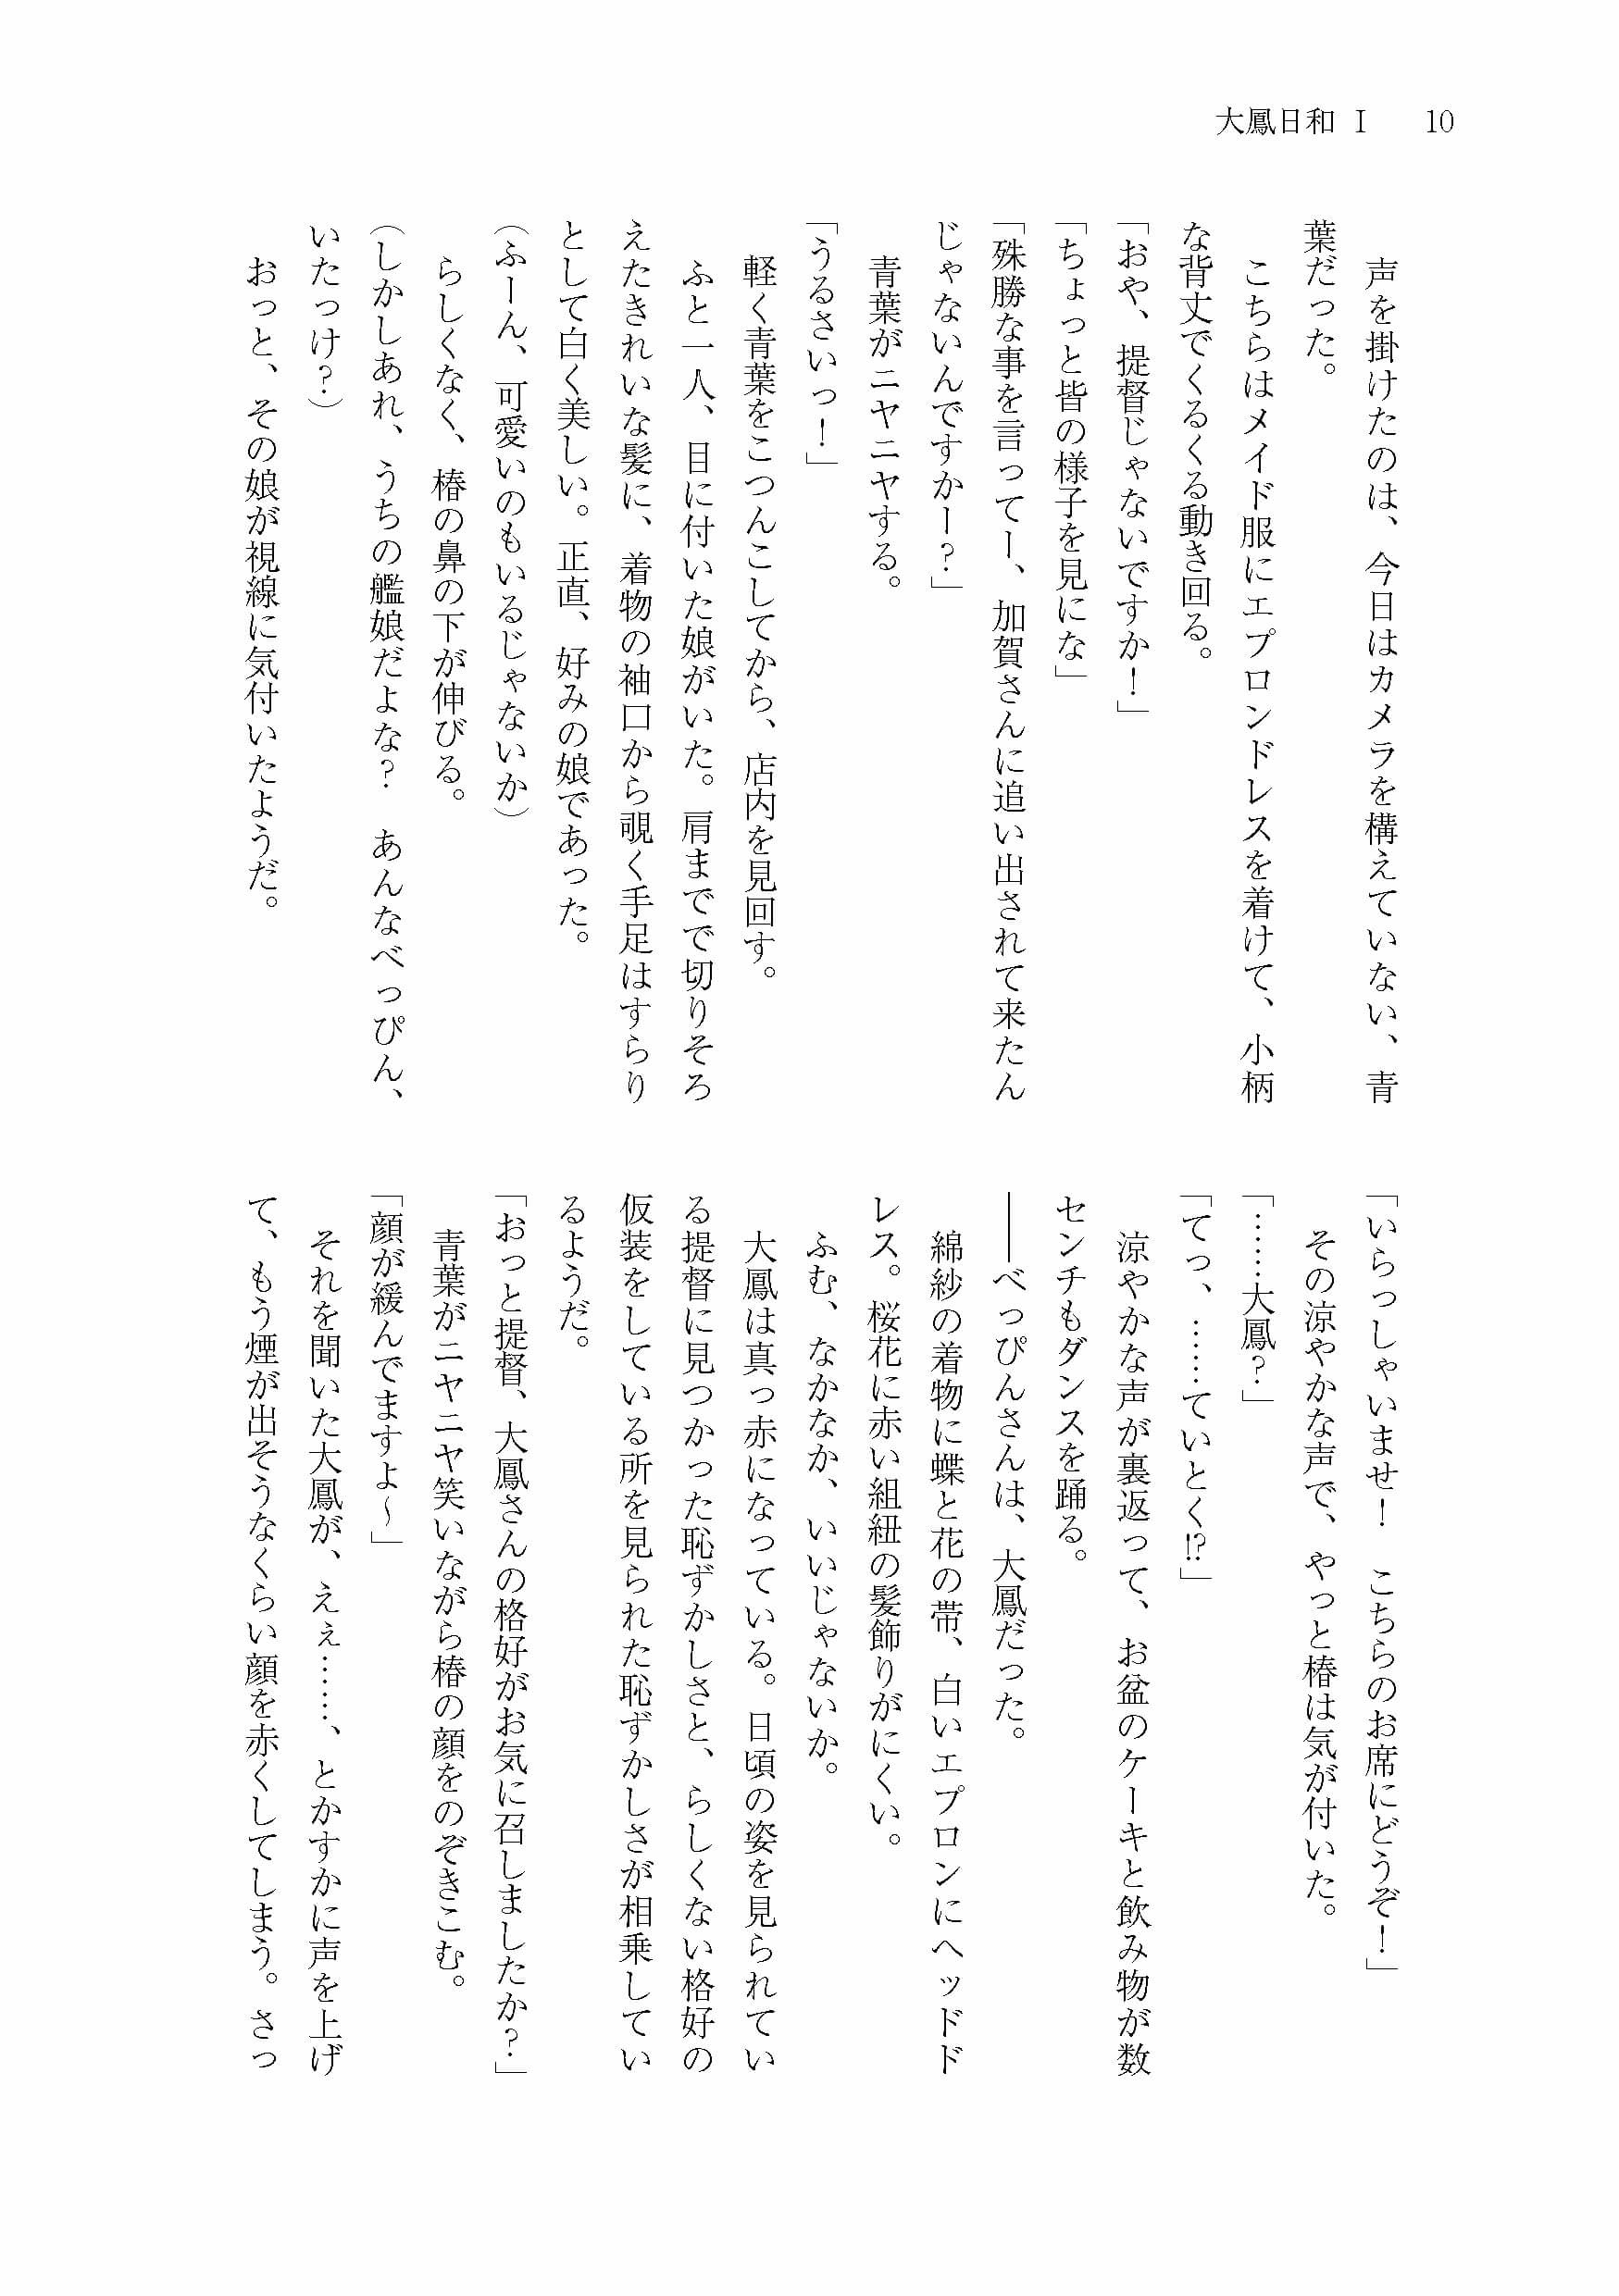 大鳳日和 Ⅰ　10
　声を掛けたのは、今日はカメラを構えていない、青
葉だった。
　こちらはメイド服にエプロンドレスを着けて、小柄
な背丈でくるくる動き回る。
「おや、提督じゃないですか！」
「ちょっと皆の様子を見にな」
「殊勝な事を言ってー、加賀さんに追い出されて来たん
じゃないんですかー？」
　青葉がニヤニヤする。
「うるさいっ！」
　軽く青葉をこつんこしてから、店内を見回す。
　ふと一人、目に付いた娘がいた。肩までで切りそろ
えたきれいな髪に、着物の袖口から覗く手足はすらり
として白く美しい。正直、好みの娘であった。
（ふーん、可愛いのもいるじゃないか）
　らしくなく、椿の鼻の下が伸びる。
（しかしあれ、うちの艦娘だよな？　あんなべっぴん、
いたっけ？）
　おっと、その娘が視線に気付いたようだ。
「いらっしゃいませ！　こちらのお席にどうぞ！」
　その涼やかな声で、やっと椿は気が付いた。
「……大鳳？」
「てっ、……ていとく⁉」
　涼やかな声が裏返って、お盆のケーキと飲み物が数
センチもダンスを踊る。
――べっぴんさんは、大鳳だった。
　綿紗の着物に蝶と花の帯、白いエプロンにヘッドド
レス。桜花に赤い組紐の髪飾りがにくい。
　ふむ、なかなか、いいじゃないか。
　大鳳は真っ赤になっている。日頃の姿を見られてい
る提督に見つかった恥ずかしさと、らしくない格好の
仮装をしている所を見られた恥ずかしさが相乗してい
るようだ。
「おっと提督、大鳳さんの格好がお気に召しましたか？」
　青葉がニヤニヤ笑いながら椿の顔をのぞきこむ。
「顔が緩んでますよ～」
　それを聞いた大鳳が、ええ……、とかすかに声を上げ
て、もう煙が出そうなくらい顔を赤くしてしまう。さっ